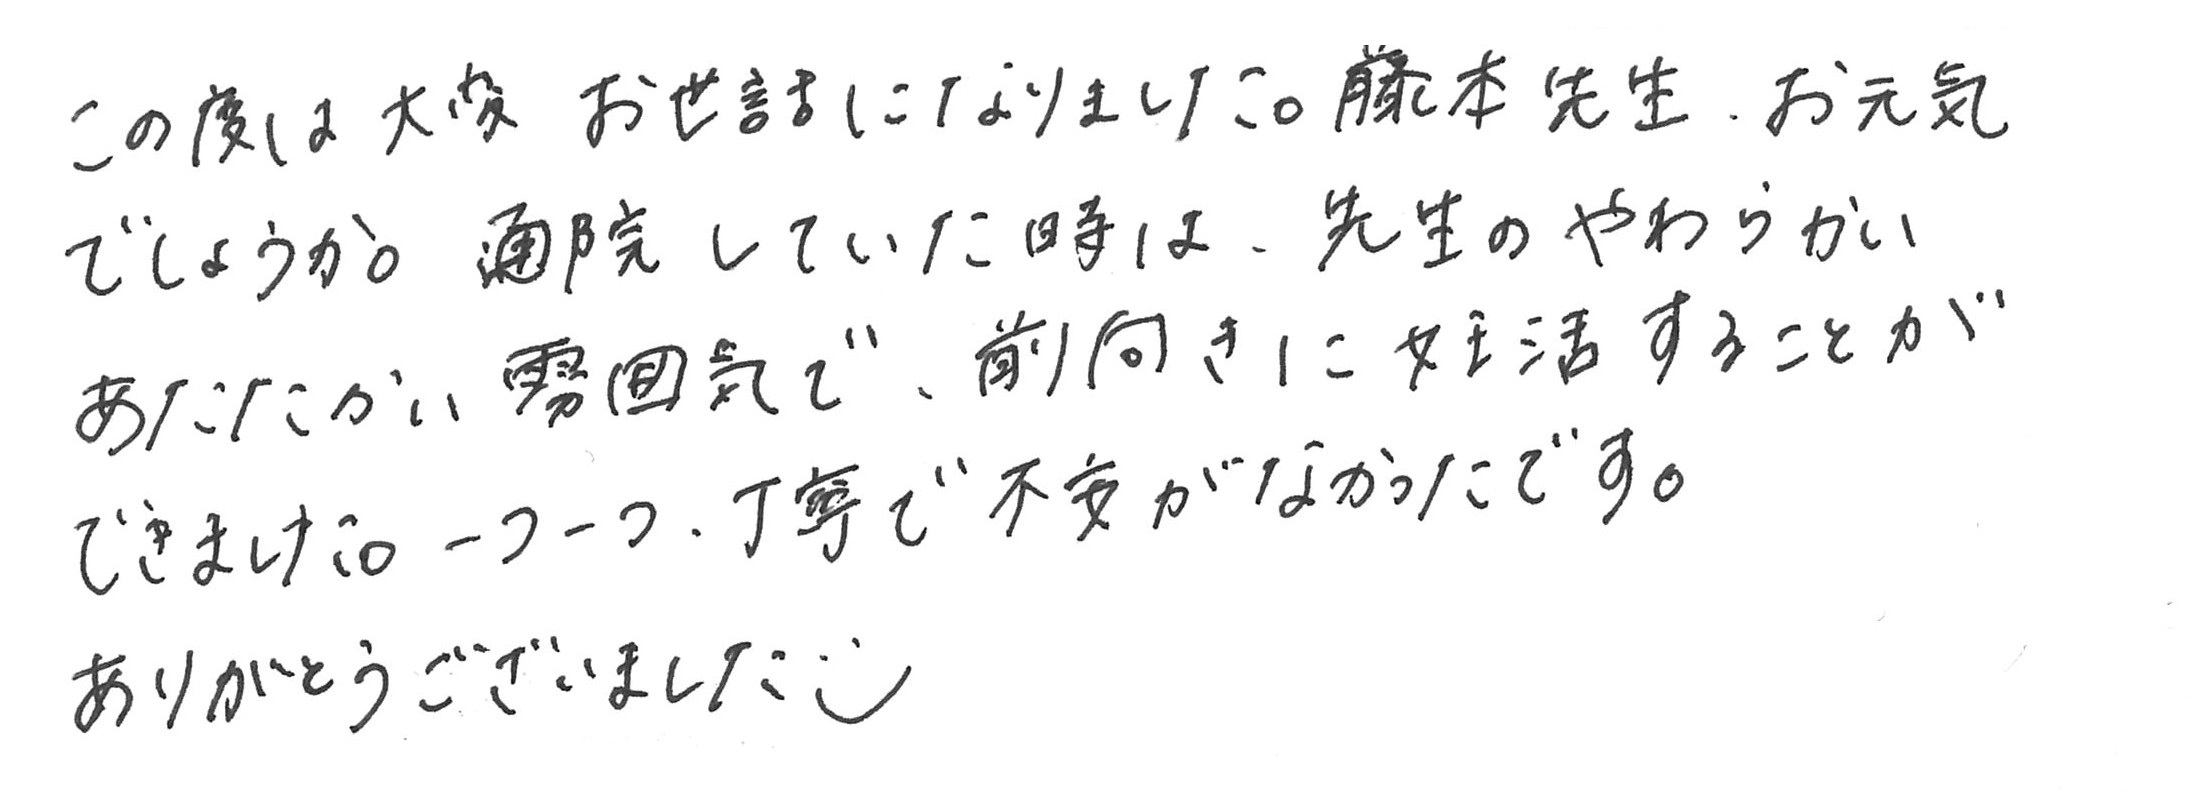 この度は大変 お世話になりました。藤本先生、お元気
でしょうか。通院していた時は、先生のやわらかい
あたたかい雰囲気で、前向きに妊活することが
できました。一つ一つ、丁寧で不安がなかったです。
ありがとうございました